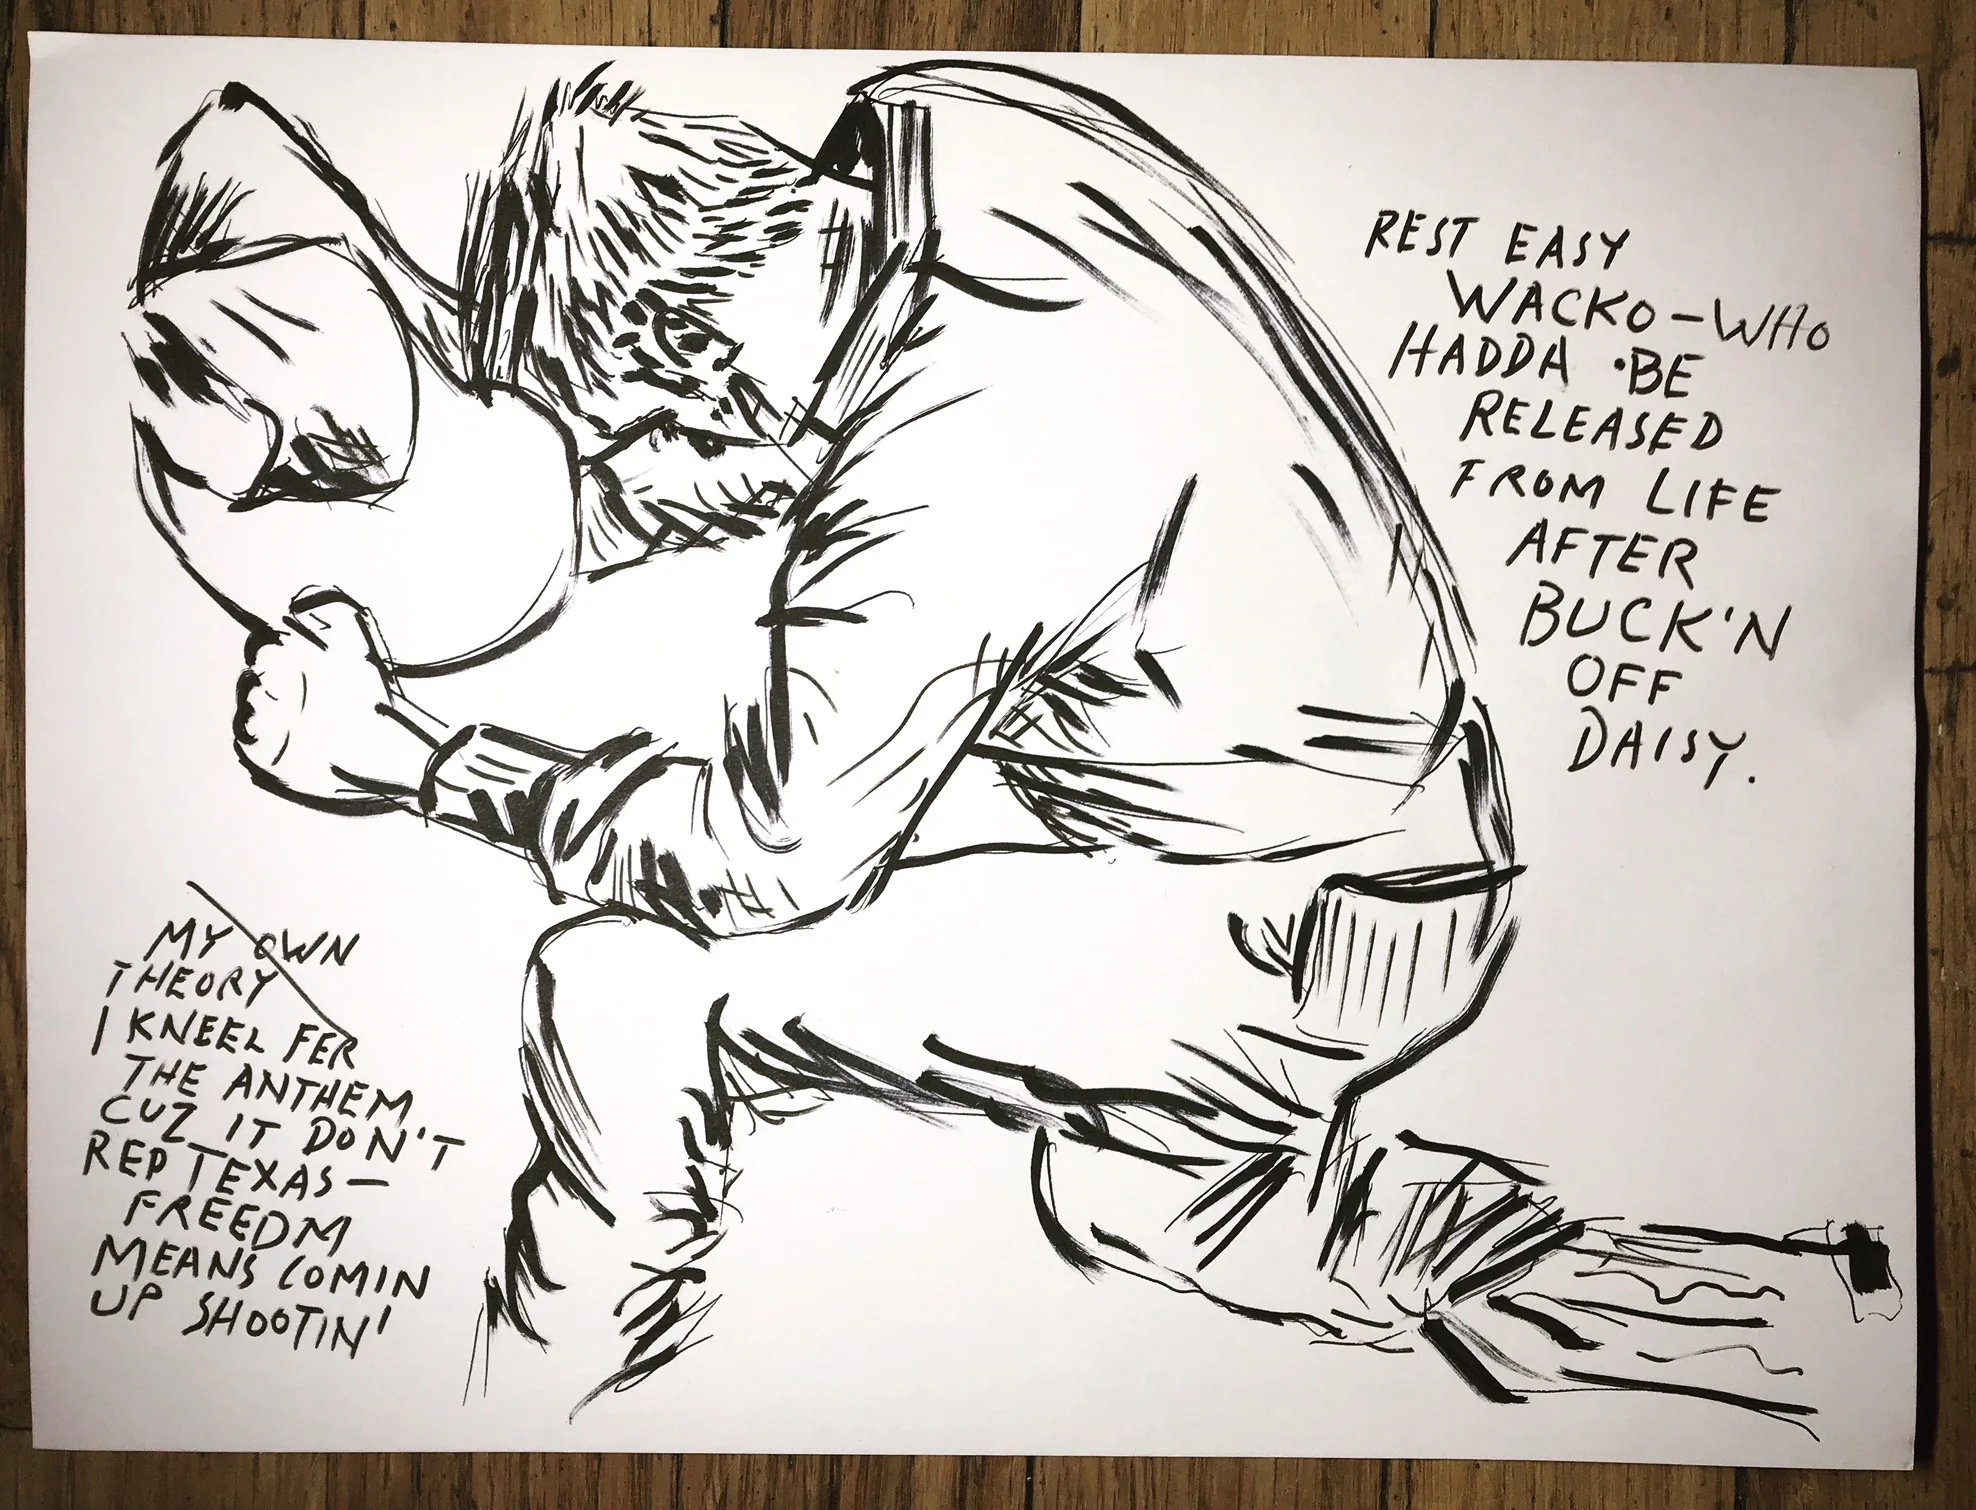 REST EASY
WACKO-WHO
HADDA BE
RELEASED
FROM LIFE
AFTER
BUCK'N
OFF
DAISY.
MY OWN
THEORY
I KNEEL FER
THE ANTHEM
CUZ IT DON'T
REP TEXAS—
FREEDM
MEANS COMIN
UP SHOOTIN'